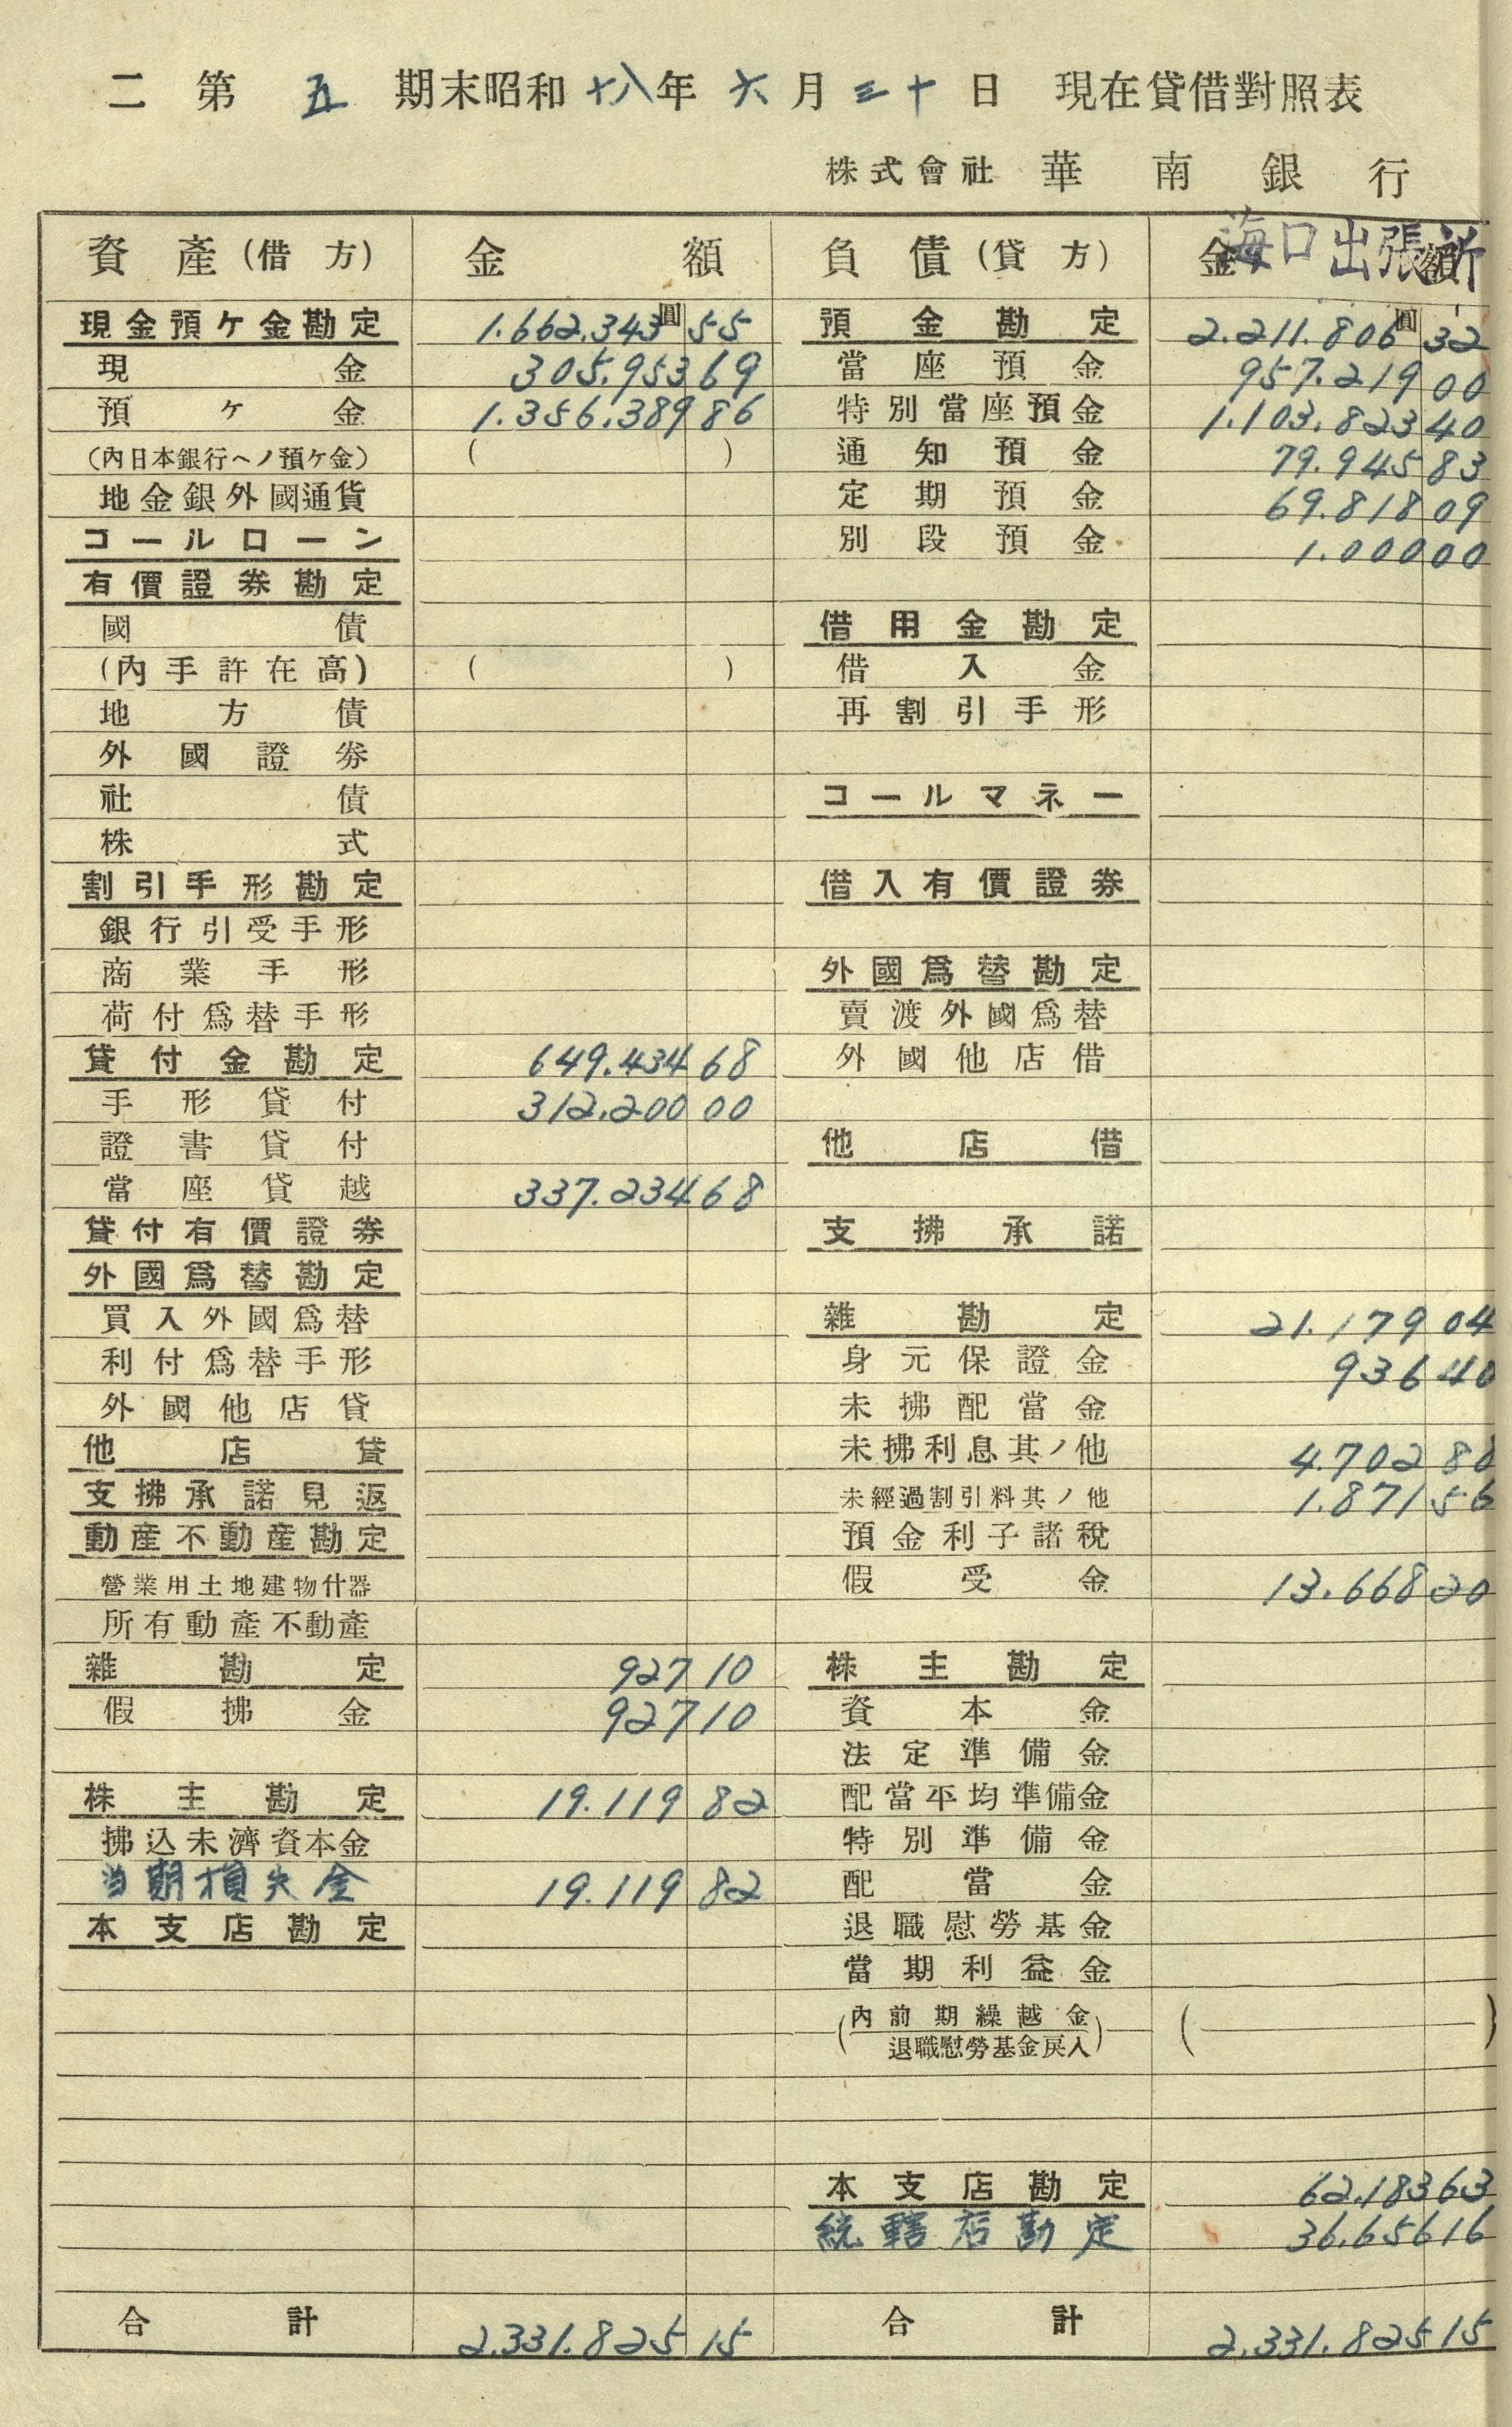 二 第 五 期末昭和十八年六月三十日 現在貸借對照表
株式會社 華南銀行
海口出張所
資產(借方) 金額 負債(貸方) 金額
現金預ケ金勘定 1.662.343圓55 預金勘定 2.211.806圓32
現金 305.953 69 當座預金 957.219 00
預ケ金 1.356.389 86 特別當座預金 1.103.823 40
(內日本銀行ヘノ預ケ金) ( ) 通知預金 79.945 83
地金銀外國通貨 定期預金 69.818 09
コールローン 別段預金 1.000 00
有價證券勘定
國債 借用金勘定
(內手許在高) ( ) 借入金
地方債 再割引手形
外國證券
社債 コールマネー
株式
割引手形勘定 借入有價證券
銀行引受手形
商業手形 外國爲替勘定
荷付爲替手形 賣渡外國爲替
貸付金勘定 649.434 68 外國他店借
手形貸付 312.200 00
證書貸付 他店借
當座貸越 337.234 68
貸付有價證券 支拂承諾
外國爲替勘定
買入外國爲替 雜勘定 21.179 04
利付爲替手形 身元保證金 936 40
外國他店貸 未拂配當金
他店貸 未拂利息其ノ他 4.702 88
支拂承諾見返 未經過割引料其ノ他 1.871 56
動產不動產勘定 預金利子諸稅
營業用土地建物什器 假受金 13.668 20
所有動產不動產
雜勘定 927 10 株主勘定
假拂金 927 10 資本金
法定準備金
株主勘定 19.119 82 配當平均準備金
拂込未濟資本金 特別準備金
当期損失金 19.119 82 配當金
本支店勘定 退職慰勞基金
當期利益金
(內前期繰越金 ( )
退職慰勞基金戾入)
本支店勘定 62.183 63
統轄店勘定 36.656 16
合計 2.331.825 15 合計 2.331.825 15